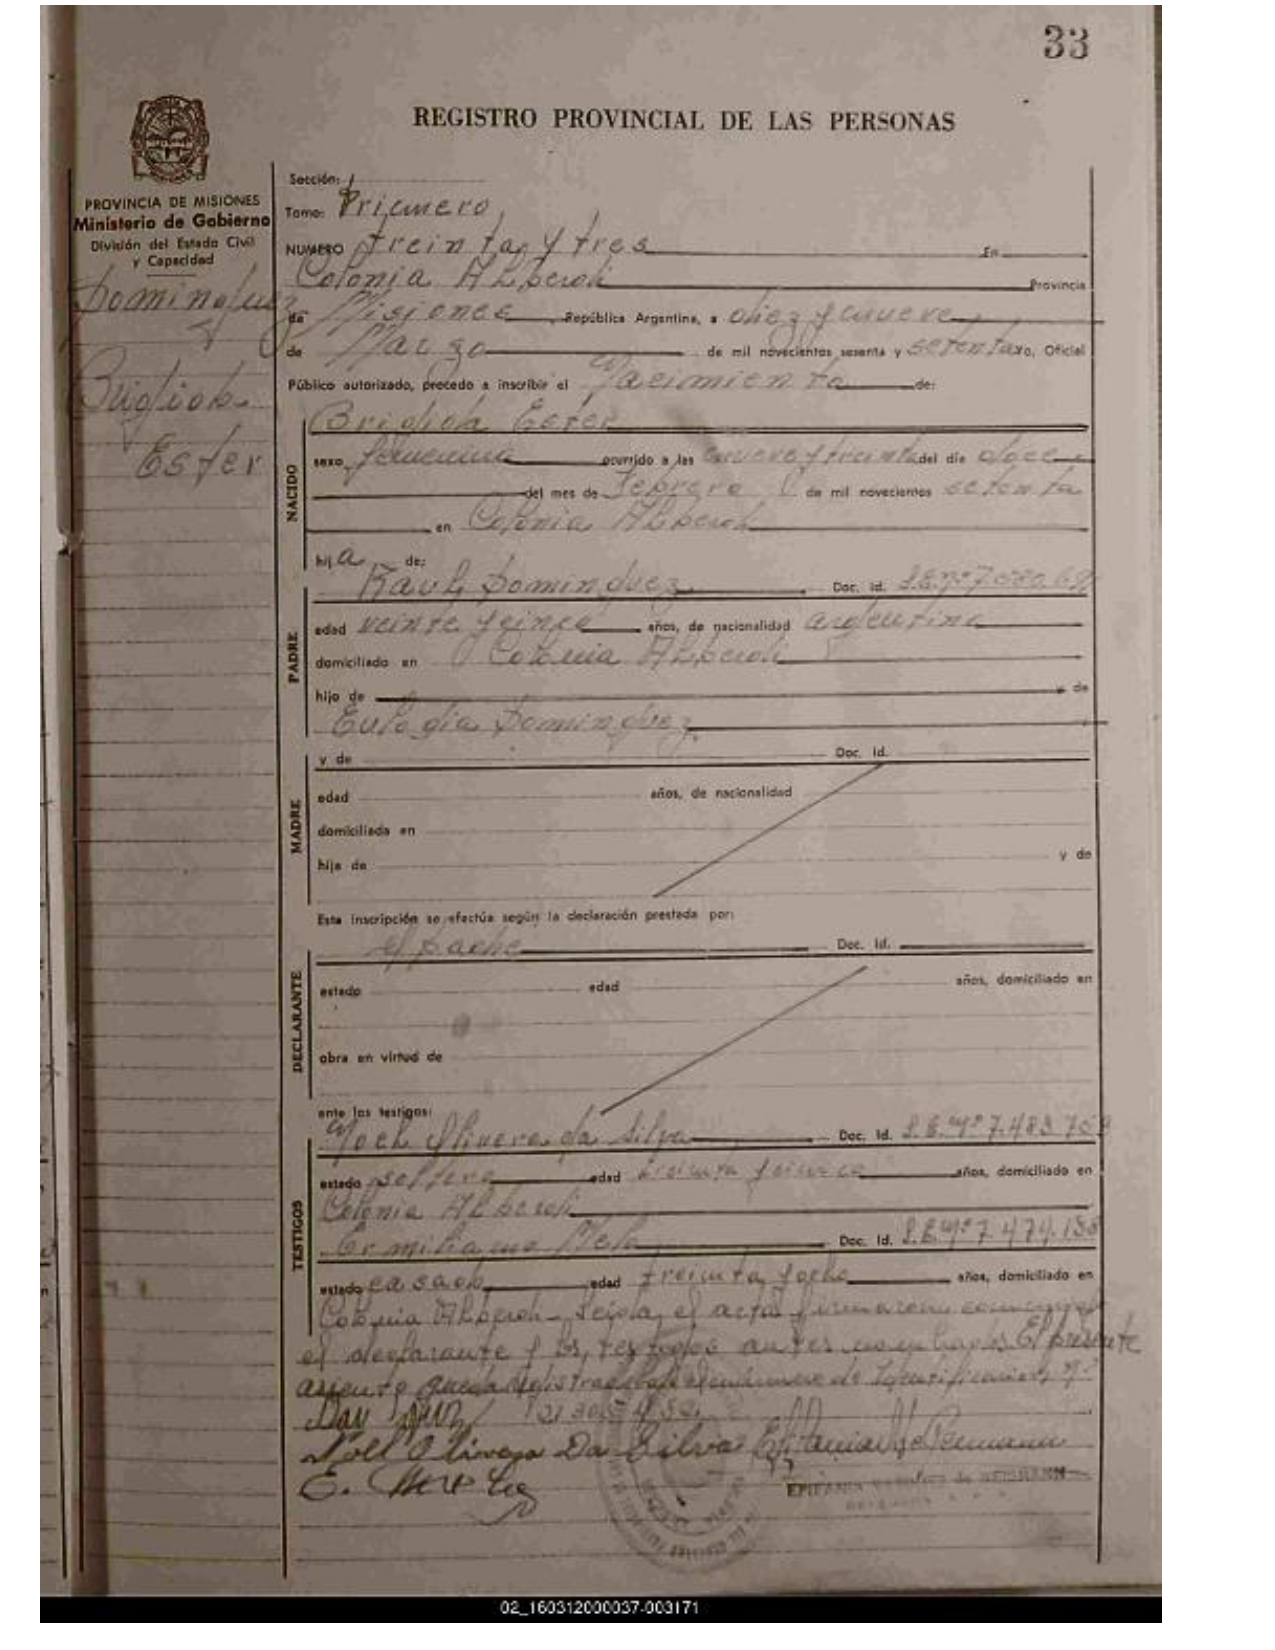 33
REGISTRO PROVINCIAL DE LAS PERSONAS
PROVINCIA DE MISIONES
Ministerio de Gobierno
División del Estado Civil
y Capacidad
Dominguez
Ester
Sección:
Tomo: Primero
NUMERO treinta y tres En
Colonia Provincia
de Misiones República Argentina, a diez y nueve
de Marzo de mil novecientos sesenta y setenta yo, Oficial
Público autorizado, procedo a inscribir el Nacimiento de:
NACIDO
Ester
sexo femenino ocurrido a las nueve y treinta del día doce
del mes de Febrero de mil novecientos setenta
en Colonia
hija de:
PADRE
Raul Dominguez Doc. Id.
edad veinte y cinco años, de nacionalidad argentina
domiciliado en Colonia
hijo de y de
Eulogia Dominguez
MADRE
y de Doc. Id.
edad años, de nacionalidad
domiciliada en
hija de y de
Esta inscripción se efectúa según la declaración prestada por:
DECLARANTE
el padre Doc. Id.
estado edad años, domiciliado en
obra en virtud de
ante los testigos:
TESTIGOS
Noel Olivera da Silva Doc. Id. L.E.Nº 7.483.
estado soltero edad treinta y cinco años, domiciliado en
Colonia
Doc. Id. L.E.Nº 7.474.
estado casado edad treinta y ocho años, domiciliado en
Colonia Leida el acta firmaron conmigo
el declarante y los testigos antes nombrados El presente
asiento queda registrado bajo el número de Identificación Nº
Noel Olivera Da Silva
EPIFANIA de
02_160312000037-003171